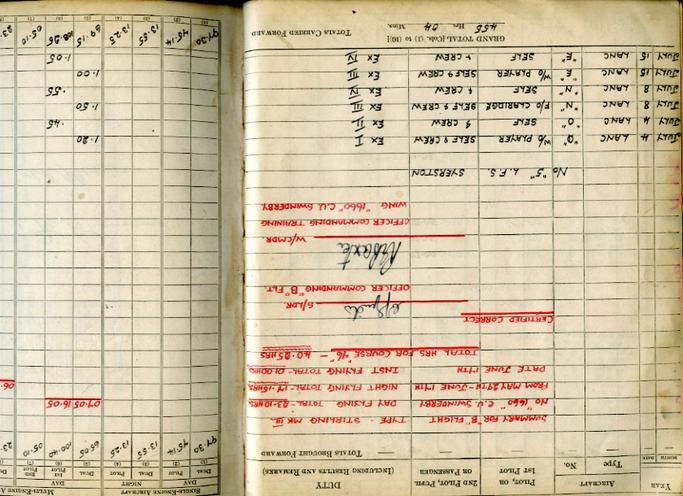 YEAR
AIRCRAFT
PILOT, OR
1ST PILOT
2ND PILOT, PUPIL
OR PASSENGER
DUTY
(INCLUDING RESULTS AND REMARKS)
MONTH DATE Type No.
TOTALS BROUGHT FORWARD
SUMMARY FOR "B" FLIGHT TYPE - STIRLING MK III
No "1660" C.U. SWINDERBY DAY FLYING TOTAL - 23.10 HRS
FROM MAY 29TH - JUNE 17TH NIGHT FLYING TOTAL - 17.15 HRS
DATE JUNE 17TH INST FLYING TOTAL - 01.00 HRS
TOTAL HRS FOR COURSE "46" - 40.25 HRS
CERTIFIED CORRECT
S/LDR.
OFFICER COMMANDING "B" FLT
W/CMDR.
OFFICER COMMANDING TRAINING
WING "1660" C.U. SWINDERBY
No "5" L.F.S. SYERSTON
JULY 4 LANC "Q" W/O PLAYER SELF & CREW EX I
JULY 4 LANC "O" SELF & EX II
JULY 8 LANC "N" F/O CLARIDGE SELF & CREW EX III
JULY 8 LANC "N" SELF & CREW EX IV
JULY 15 LANC "E" W/O PLAYER SELF & CREW EX III
JULY 15 LANC "E" SELF & CREW EX IV
GRAND TOTAL [Cols. (1) to (10)]
455 Hrs. 04 Mins.
TOTALS CARRIED FORWARD
SINGLE-ENGINE AIRCRAFT
MULTI-ENGINE A
DAY NIGHT DAY
DUAL PILOT DUAL PILOT DUAL 1ST PILOT 2ND PILOT
(1) (2) (3) (4) (5) (6) (7)
97.30 45.14 13.55 13.25 65.05 100.40 05.10 23
07.05 16.05 06.
1.20
.45
1.50
.55
1.00
1.05
97.30 45.14 13.55 13.25 69.15 05.10 23
(2) (3) (4) (5) (6) (7)